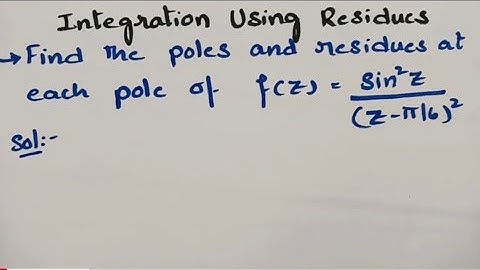 Integration Using Residues
→ Find the poles and residues at
each pole of f(z) = sin²z / (z-π/6)²
Sol:-